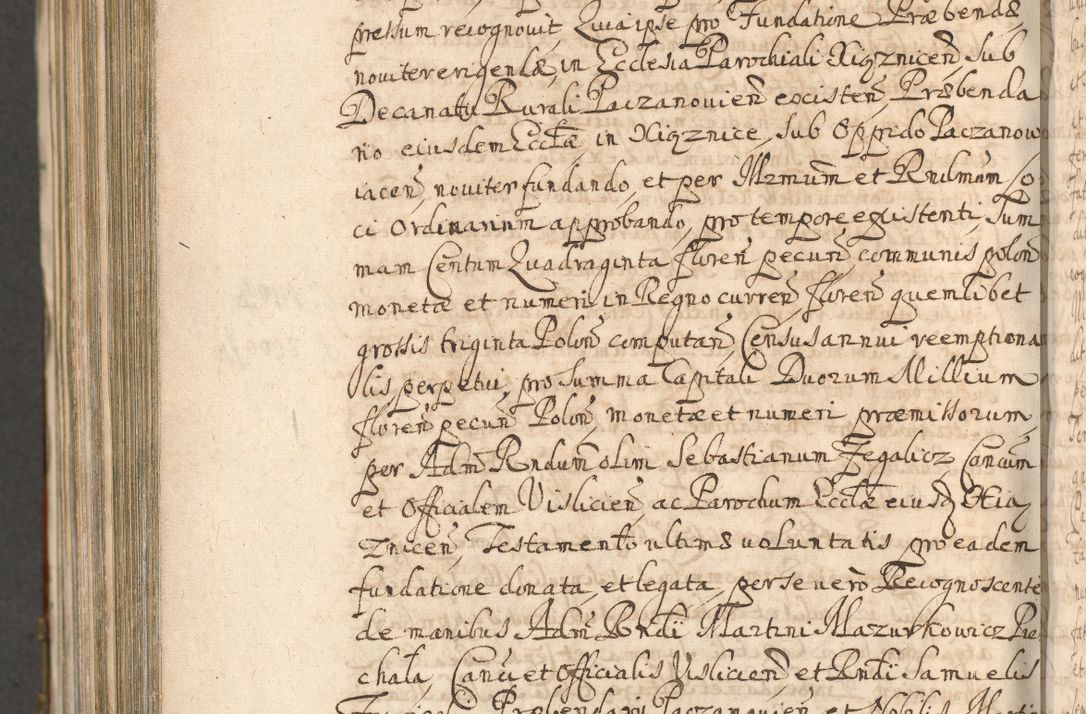 pressum recognovit, Quia ipse pro Fundatione Præbendæ
noviter erigendæ, in Ecclesia Parochiali Xiąznicen̄, sub
Decanatu Rurali Paczanovien̄ existen̄, Præbenda
rio eiusdem Eccłæ in Xiąznice, sub Oppido Paczanow
iacen̄, noviter fundando, et per Illmum̄ et Rndmum̄ Lo
ci Ordinarium approbando, pro tempore existenti, Sum
mam Centum Quadraginta floren̄ pecun̄ communis polon̄
monetæ et numeri, in Regno curren̄ floren̄ quemlibet
grossis triginta Polon̄ computan̄, Census annui reemptiona
lis perpetui, pro Summa Capitali Duorum Millium
floren̄ pecun̄ Polon̄, monetæ et numeri præmissorum,
per Adm̄ Rndum̄ olim Sebastianum Zegalicz, Cancum̄
et Officialem Vislicien̄, ac Parochum Eccłæ eiusd̄ Xią
znicen̄, Testamento ultimæ voluntatis pro eadem
fundatione donata, et legata, per se vero Recognoscente
de manibus Adm̄ Rndi Martini Mazurkowicz Pie
chała, Canci et Officialis Vislicien̄ et Rndi Samuelis
Præbendarii Paczanovien̄, et Nobilis